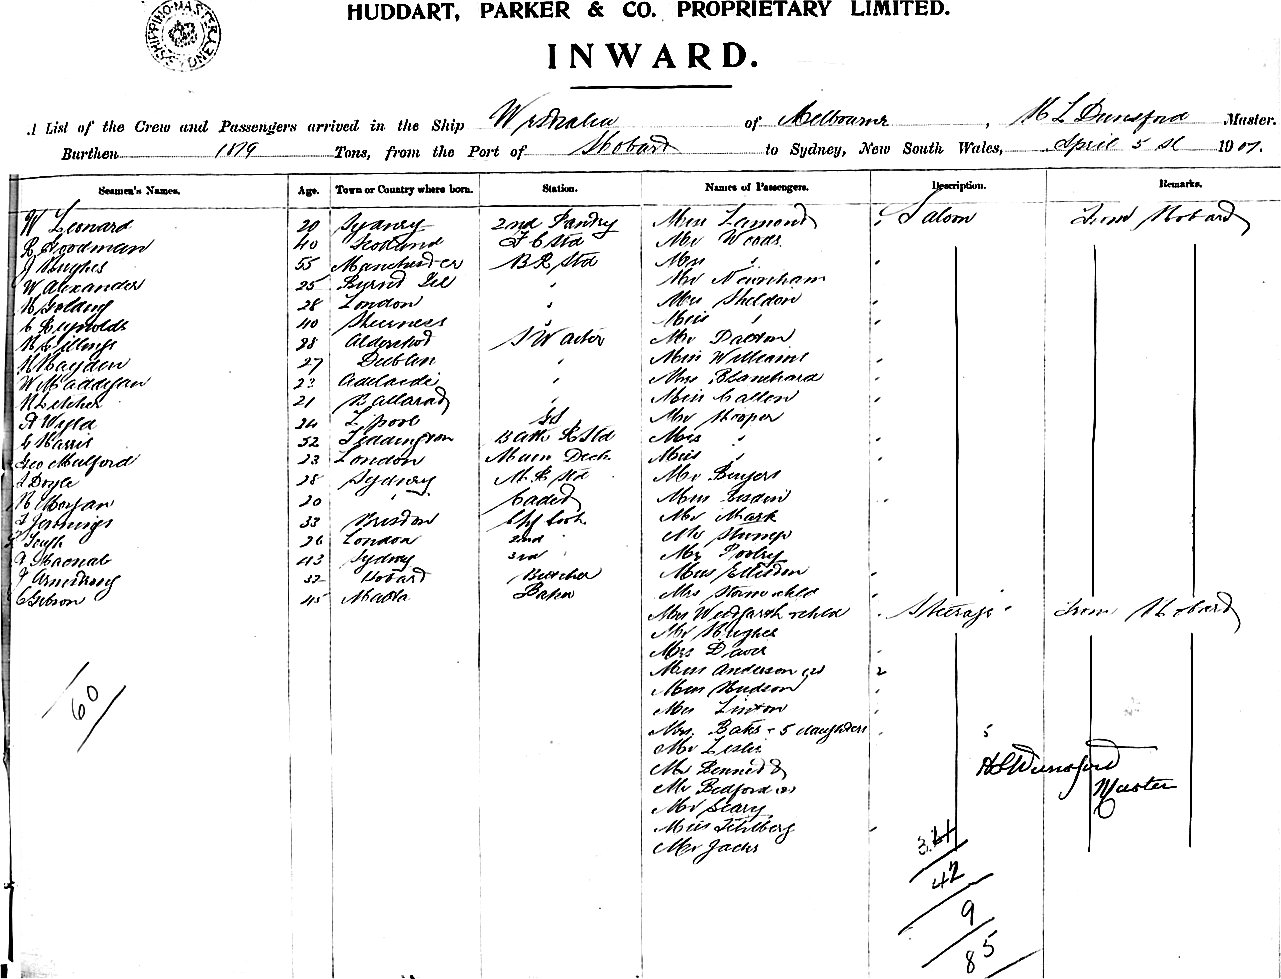 SHIPPING MASTER SYDNEY
HUDDART, PARKER & CO. PROPRIETARY LIMITED.
INWARD.
A List of the Crew and Passengers arrived in the Ship Westralia of Melbourne, H L Dunsford Master.
Burthen 1819 Tons, from the Port of Hobart to Sydney, New South Wales, April 5 1907.
Seamen's Names. Age. Town or Country where born. Station. Names of Passengers. Description. Remarks.
W Leonard 20 Sydney 2nd Pantry Miss Lamond Saloon From Hobart
R Goodman 40 Scotland F C Std Mr Woods
J Hughes 55 Manchester B R Std Mrs "
W Alexander 25 " Mr Newnham
H Golding 28 London " Mrs Sheldon
C Reynolds 40 Sheerness " Miss "
28 Aldershot S Waiter Mr Dalton
H Hayden 27 Dublin " Miss Williams
W Maddigan 23 Adelaide " Mrs Blanchard
H Letcher 21 Ballarat " Miss Callon
A Wyld 24 L'pool Mr Hooper
C Harris 52 Teddington Bath R Std Mrs "
Geo Mulford 23 London Main Deck Miss "
J Doyle 28 Sydney M R Std Mr Buyers
H Morgan 20 " Cadet Miss
J Jennings 33 Chf Cook Mr Mark
Tough 26 London 2nd " Mr Stump
43 Sydney 3rd " Mr Pooley
F Armstrong 32 Hobart Butcher Miss Ellisdon
C Gibson 45 Malta Baker Mrs child
Mrs & child Steerage From Hobart
Mr Hughes
Mrs Dawes
Miss Anderson (2) 2
Miss Hudson
Mrs Linton
Mrs. Baks - 5 daughters 5
Mr Leslie
Mr Bennett
Mr Bedford
Mr Geary
Miss Fehlberg
Mr Jacks
60
H L Dunsford
Master
42
9
85